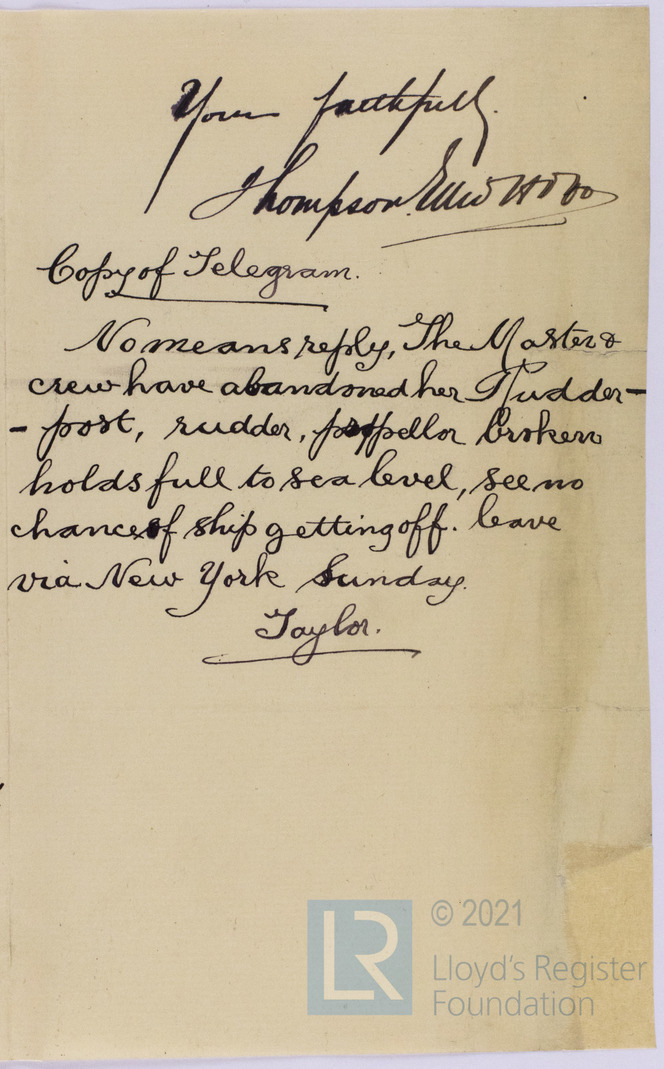 Yours faithfully
Thompson
Copy of Telegram.
No means reply, The Master &
crew have abandoned her Rudder-
- post, rudder, propellor broken
holds full to sea level, see no
chance of ship getting off. leave
via New York Sunday.
Taylor.
LR
© 2021
Lloyd's Register
Foundation